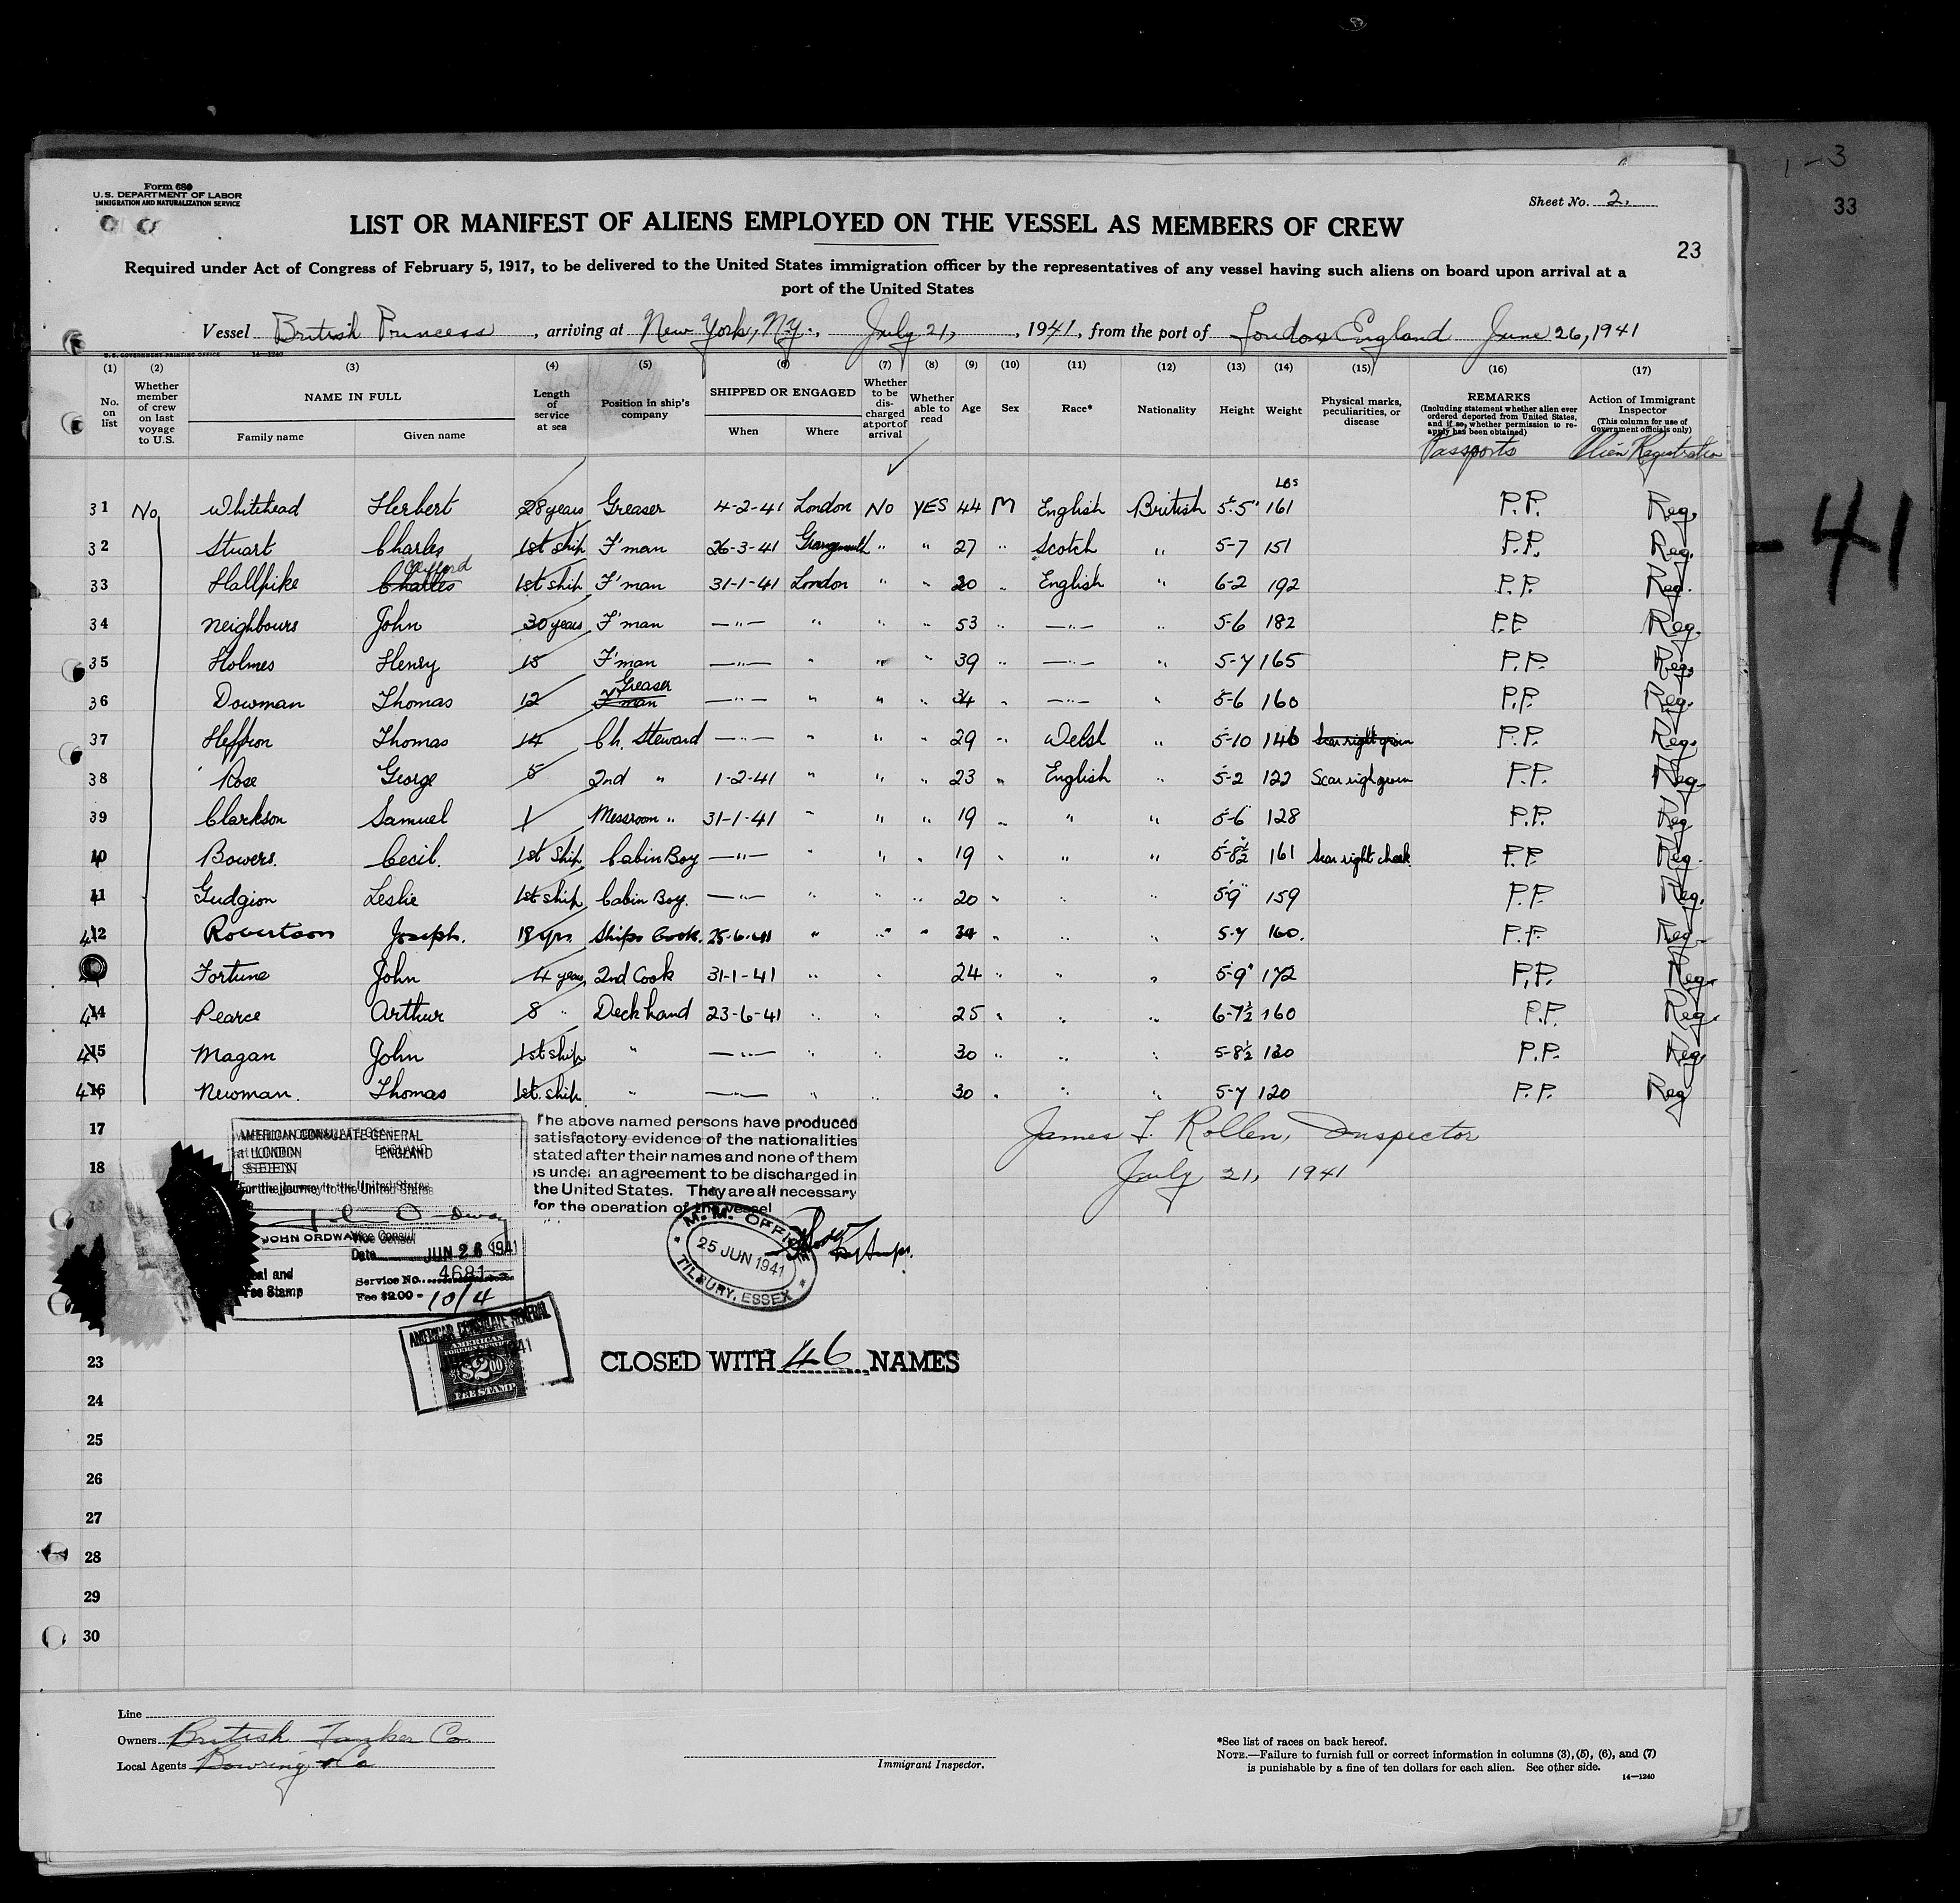 1-3
33
Form 680
U.S. DEPARTMENT OF LABOR
IMMIGRATION AND NATURALIZATION SERVICE
Sheet No. 2.
LIST OR MANIFEST OF ALIENS EMPLOYED ON THE VESSEL AS MEMBERS OF CREW
23
Required under Act of Congress of February 5, 1917, to be delivered to the United States immigration officer by the representatives of any vessel having such aliens on board upon arrival at a
port of the United States
Vessel British Princess, arriving at New York, N.Y., July 21, 1941, from the port of London England June 26, 1941
U.S. GOVERNMENT PRINTING OFFICE 14—1240
(1) (2) (3) (4) (5) (6) (7) (8) (9) (10) (11) (12) (13) (14) (15) (16) (17)
No. on list
Whether member of crew on last voyage to U.S.
NAME IN FULL
Family name Given name
Length of service at sea
Position in ship's company
SHIPPED OR ENGAGED
When Where
Whether to be discharged at port of arrival
Whether able to read
Age Sex Race* Nationality Height Weight
Physical marks, peculiarities, or disease
REMARKS
(Including statement whether alien ever ordered deported from United States, and if so, whether permission to reapply has been obtained)
Passports
Action of Immigrant Inspector
(This column for use of Government officials only)
Alien Registration
LBS
31 No Whitehead Herbert 28 years Greaser 4-2-41 London No YES 44 M English British 5-5" 161 P.P. Reg.
32 Stuart Charles 1st ship F'man 26-3-41 Grangemouth " " 27 " Scotch " 5-7 151 P.P. Reg.
33 Hallpike Charles Clifford 1st ship F'man 31-1-41 London " " 20 " English " 6-2 192 P.P. Reg.
34 Neighbours John 30 years F'man —"— " " " 53 " —"— " 5-6 182 P.P. Reg.
35 Holmes Henry 15 F'man —"— " " " 39 " —"— " 5-7 165 P.P. Reg.
36 Dowman Thomas 12 F'man Greaser —"— " " " 34 " —"— " 5-6 160 P.P. Reg.
37 Heffron Thomas 14 Ch. Steward —"— " " " 29 " Welsh " 5-10 146 Scar right groin P.P. Reg.
38 Rose George 5 2nd " 1-2-41 " " " 23 " English " 5-2 122 Scar righ groin P.P. Reg.
39 Clarkson Samuel 1 Messroom " 31-1-41 " " " 19 " " " 5-6 128 P.P. Reg
40 Bowers. Cecil. 1st Ship Cabin Boy —"— " " " 19 " " " 5-8½ 161 Scar right cheek P.P. Reg.
41 Gudgion Leslie 1st ship Cabin Boy. —"— " " " 20 " " " 5-9 159 P.P. Reg.
42 Robertson Joseph. 18 yrs. Ships Cook. 25-6-41 " " " 34 " " " 5-7 160. P.P. Reg.
Fortune John 4 years 2nd Cook 31-1-41 " " 24 " " " 5-9" 172 P.P. Reg.
44 Pearce Arthur 8 " Deck hand 23-6-41 " " 25 " " " 6-7½ 160 P.P. Reg.
45 Magan John 1st ship " —"— " " 30 " " " 5-8½ 130 P.P. Reg.
46 Newman. Thomas 1st. ship " —"— " " 30 " " " 5-7 120 P.P. Reg
17
18
23
24
25
26
27
28
29
30
AMERICAN CONSULATE GENERAL
at LONDON ENGLAND
SEEN
For the journey to the United States
JOHN ORDWAY Vice Consul
Date JUN 26 1941
Seal and Fee Stamp
Service No. 4681
Fee $2.00 = 10/4
The above named persons have produced
satisfactory evidence of the nationalities
stated after their names and none of them
is under an agreement to be discharged in
the United States. They are all necessary
for the operation of the vessel
James T. Rollen, Inspector
July 21, 1941
M.M. OFFICE
25 JUN 1941
TILBURY, ESSEX
AMERICAN CONSULATE GENERAL
1941
AMERICAN
FOREIGN SERVICE
$2.00
FEE STAMP
CLOSED WITH 46 NAMES
-41
Line
Owners British Tanker Co.
Local Agents Bowring & Co
Immigrant Inspector.
*See list of races on back hereof.
NOTE.—Failure to furnish full or correct information in columns (3), (5), (6), and (7)
is punishable by a fine of ten dollars for each alien. See other side.
14—1240